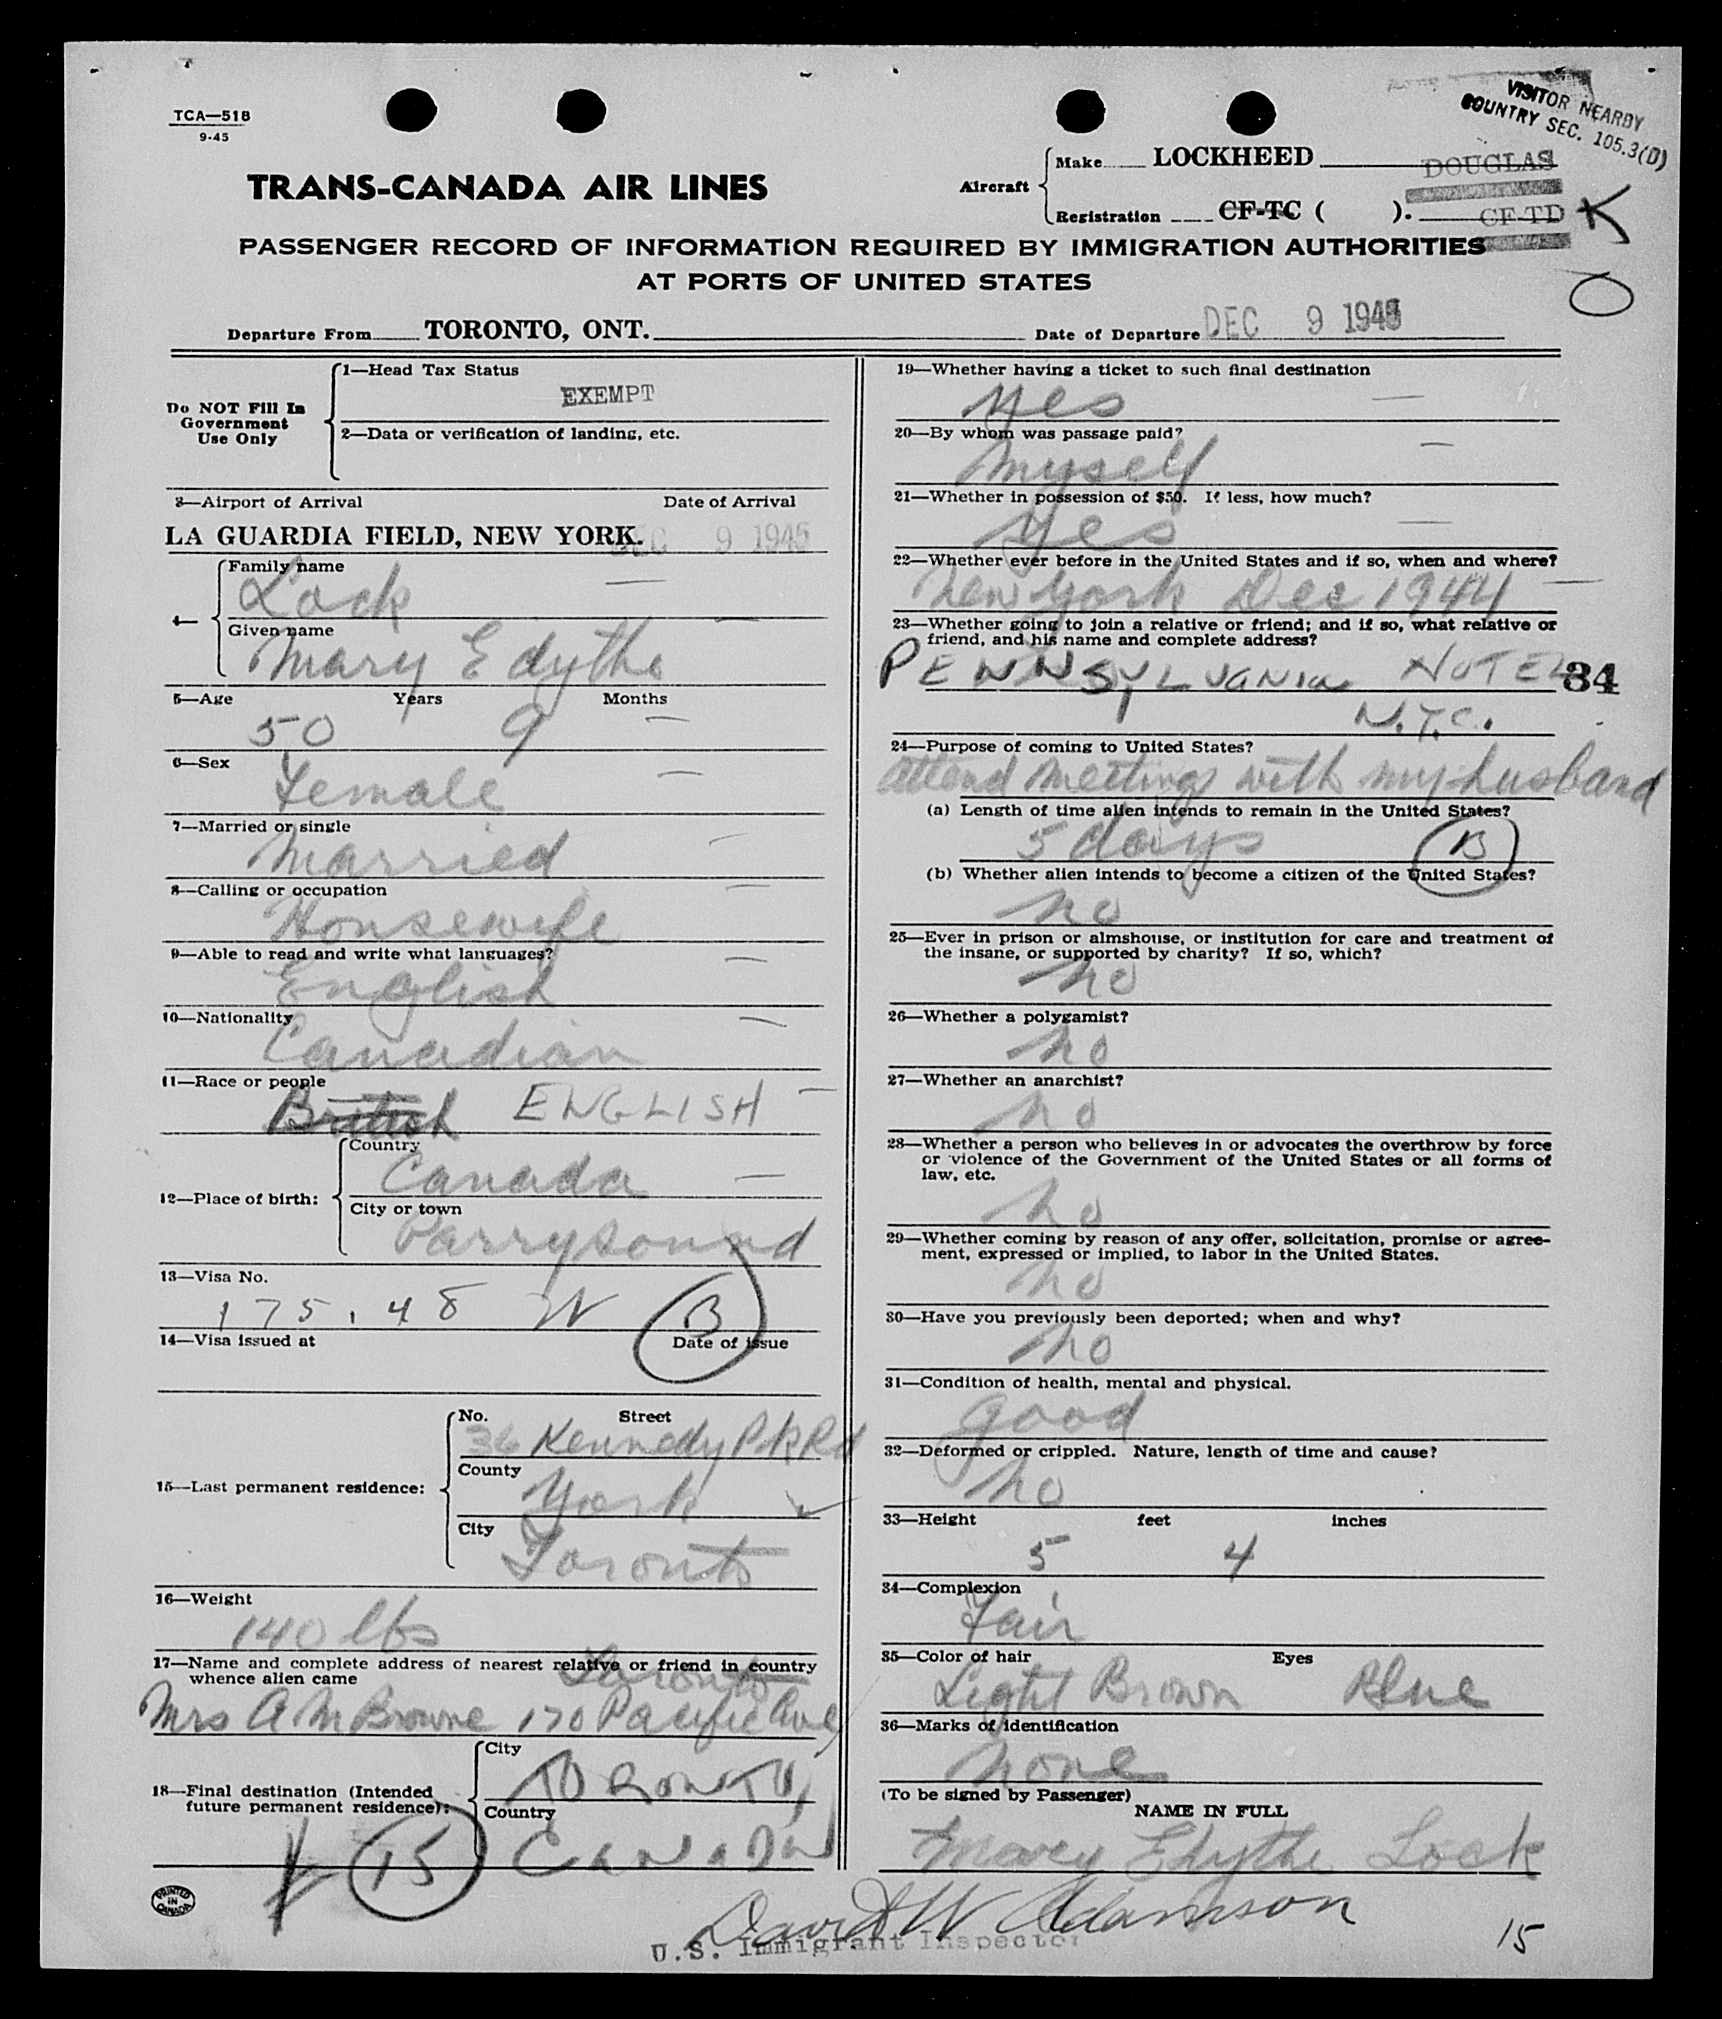 TCA—518
9-45
VISITOR NEARBY
COUNTRY SEC. 105.3(D)
TRANS-CANADA AIR LINES
Aircraft
Make LOCKHEED DOUGLAS
Registration CF-TC ( ). CF-TD K
PASSENGER RECORD OF INFORMATION REQUIRED BY IMMIGRATION AUTHORITIES
AT PORTS OF UNITED STATES
Departure From TORONTO, ONT. Date of Departure DEC 9 1945
Do NOT Fill In
Government
Use Only
1—Head Tax Status
EXEMPT
2—Data or verification of landing, etc.
3—Airport of Arrival Date of Arrival
LA GUARDIA FIELD, NEW YORK. DEC 9 1945
4—
Family name
Lock
Given name
Mary Edythe
5—Age Years Months
50 9
6—Sex
Female
7—Married or single
Married
8—Calling or occupation
Housewife
9—Able to read and write what languages?
English
10—Nationality
Canadian
11—Race or people
British ENGLISH
12—Place of birth:
Country
Canada
City or town
Parrysound
13—Visa No.
175.48 W B
14—Visa issued at Date of issue
15—Last permanent residence:
No. Street
36 Kennedy Pk Rd
County
York
City
Toronto
16—Weight
140 lbs
17—Name and complete address of nearest relative or friend in country
whence alien came
Toronto
Mrs A M Browne 170 Pacific Ave
18—Final destination (Intended
future permanent residence):
City
TORONTO,
Country
CANADA
15
PRINTED
IN
CANADA
19—Whether having a ticket to such final destination
Yes
20—By whom was passage paid?
Myself
21—Whether in possession of $50. If less, how much?
Yes
22—Whether ever before in the United States and if so, when and where?
New York Dec 1944
23—Whether going to join a relative or friend; and if so, what relative or
friend, and his name and complete address?
PENNSYLVANIA HOTEL 34
N.Y.C.
24—Purpose of coming to United States?
attend meetings with my husband
(a) Length of time alien intends to remain in the United States?
5 days B
(b) Whether alien intends to become a citizen of the United States?
no
25—Ever in prison or almshouse, or institution for care and treatment of
the insane, or supported by charity? If so, which?
no
26—Whether a polygamist?
no
27—Whether an anarchist?
no
28—Whether a person who believes in or advocates the overthrow by force
or violence of the Government of the United States or all forms of
law, etc.
no
29—Whether coming by reason of any offer, solicitation, promise or agree-
ment, expressed or implied, to labor in the United States.
no
30—Have you previously been deported; when and why?
no
31—Condition of health, mental and physical.
good
32—Deformed or crippled. Nature, length of time and cause?
no
33—Height feet inches
5 4
34—Complexion
Fair
35—Color of hair Eyes
Light Brown Blue
36—Marks of identification
none
(To be signed by Passenger)
NAME IN FULL
Mary Edythe Lock
David W Adamson
U.S. Immigrant Inspector
15